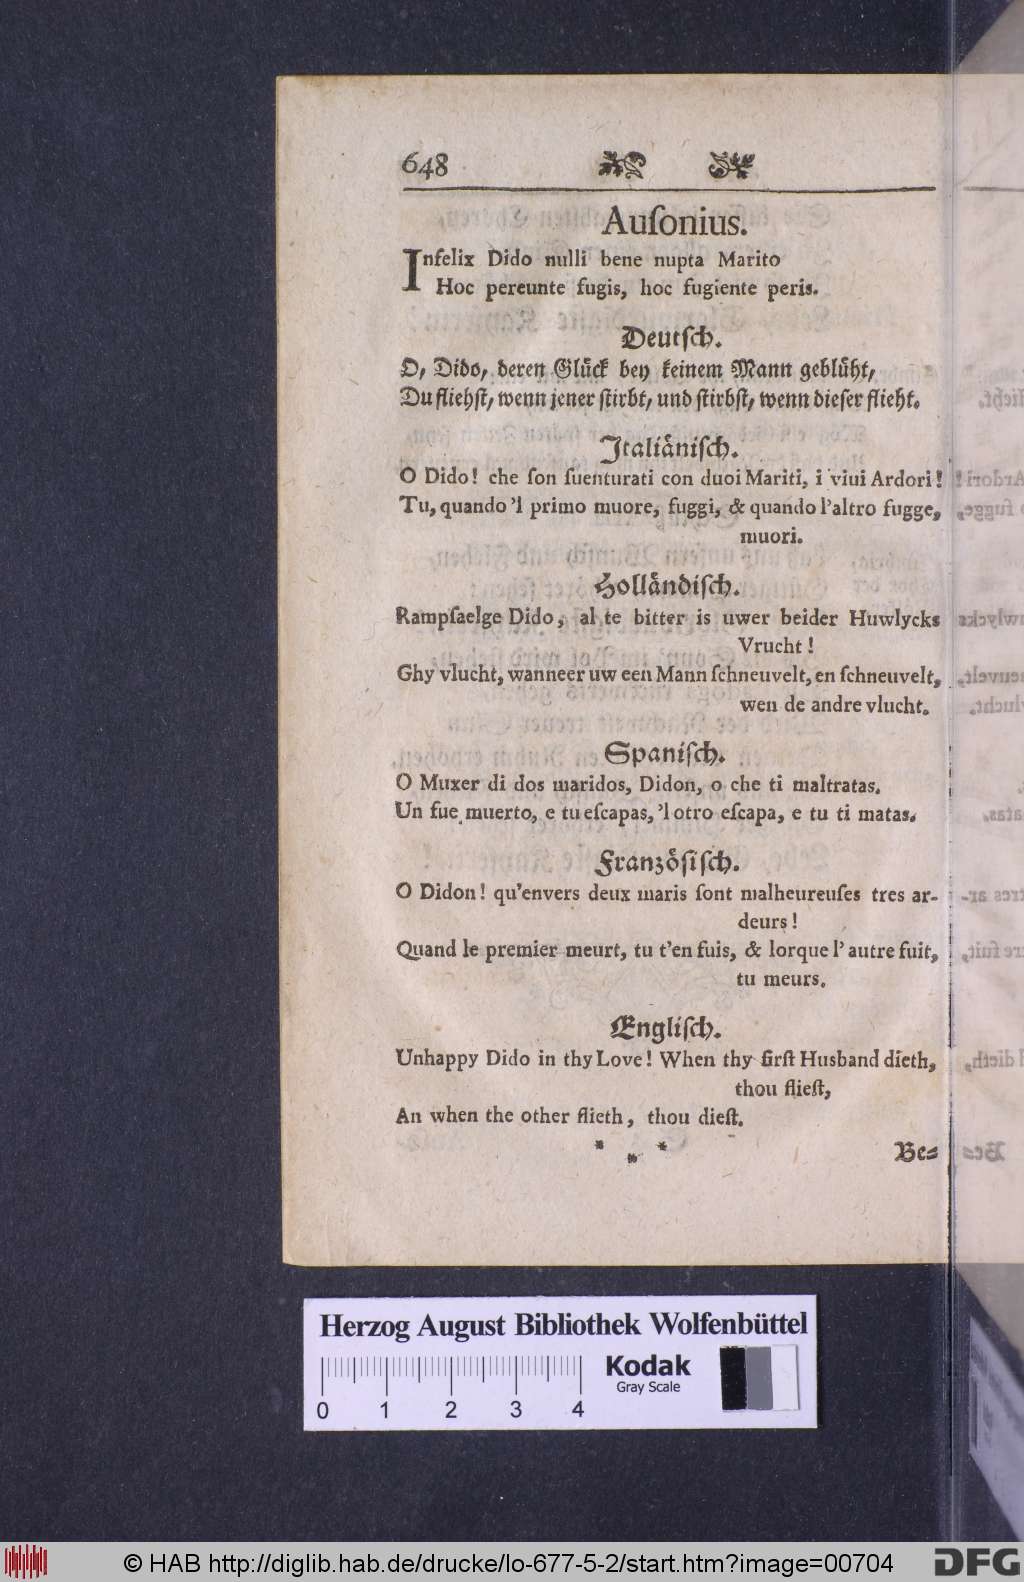 648
Auſonius.
Infelix Dido nulli bene nupta Marito
Hoc pereunte fugis, hoc fugiente peris.
Deutſch.
O, Dido, deren Glück bey keinem Mann geblüht,
Du fliehſt, wenn jener ſtirbt, und ſtirbſt, wenn dieſer flieht.
Italiäniſch.
O Dido! che ſon ſuenturati con duoi Mariti, i viui Ardori!
Tu, quando 'l primo muore, fuggi, & quando l'altro fugge,
muori.
Holländiſch.
Rampſaelge Dido, al te bitter is uwer beider Huwlycks
Vrucht!
Ghy vlucht, wanneer uw een Mann ſchneuvelt, en ſchneuvelt,
wen de andre vlucht.
Spaniſch.
O Muxer di dos maridos, Didon, o che ti maltratas.
Un fue muerto, e tu eſcapas, 'l otro eſcapa, e tu ti matas.
Französiſch.
O Didon! qu'envers deux maris ſont malheureuſes tres ar-
deurs!
Quand le premier meurt, tu t'en fuis, & lorque l'autre fuit,
tu meurs.
Engliſch.
Unhappy Dido in thy Love! When thy firſt Husband dieth,
thou flieſt,
An when the other flieth, thou dieſt.
* * *
Be-
Herzog August Bibliothek Wolfenbüttel
Kodak
Gray Scale
0 1 2 3 4
© HAB http://diglib.hab.de/drucke/lo-677-5-2/start.htm?image=00704
DFG